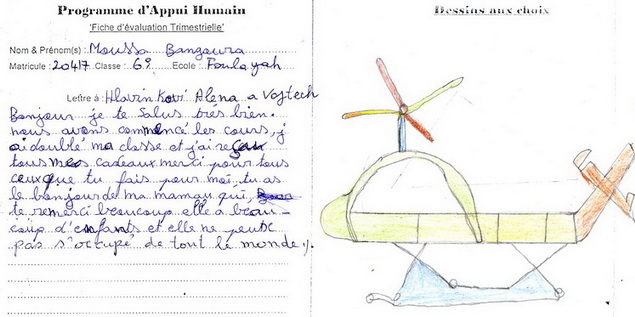 Programme d'Appui Humain
'Fiche d'évaluation Trimestrielle'
Nom & Prénom(s) : Moussa Bangoura
Matricule : 20417 Classe : 6è Ecole : Foulayah
Lettre à : Hlavinkovi Alena a Vojtech
Bonjour je te Salus très bien.
nous avons commencé les cours, j
ai doublé ma classe et j'ai reçu
tous mes cadeaux merci pour tous
ceux que tu fais pour moi, tu as
le bonjour de ma maman qui,
te remerci beaucoup elle a beau-
coup d'enfants et elle ne peux
pas s'occupé de tout le monde.
Dessins aux choix